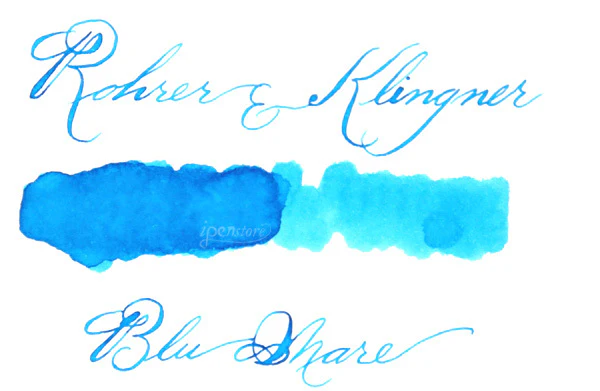 Rohrer & Klingner
ipenstore
Blu Mare